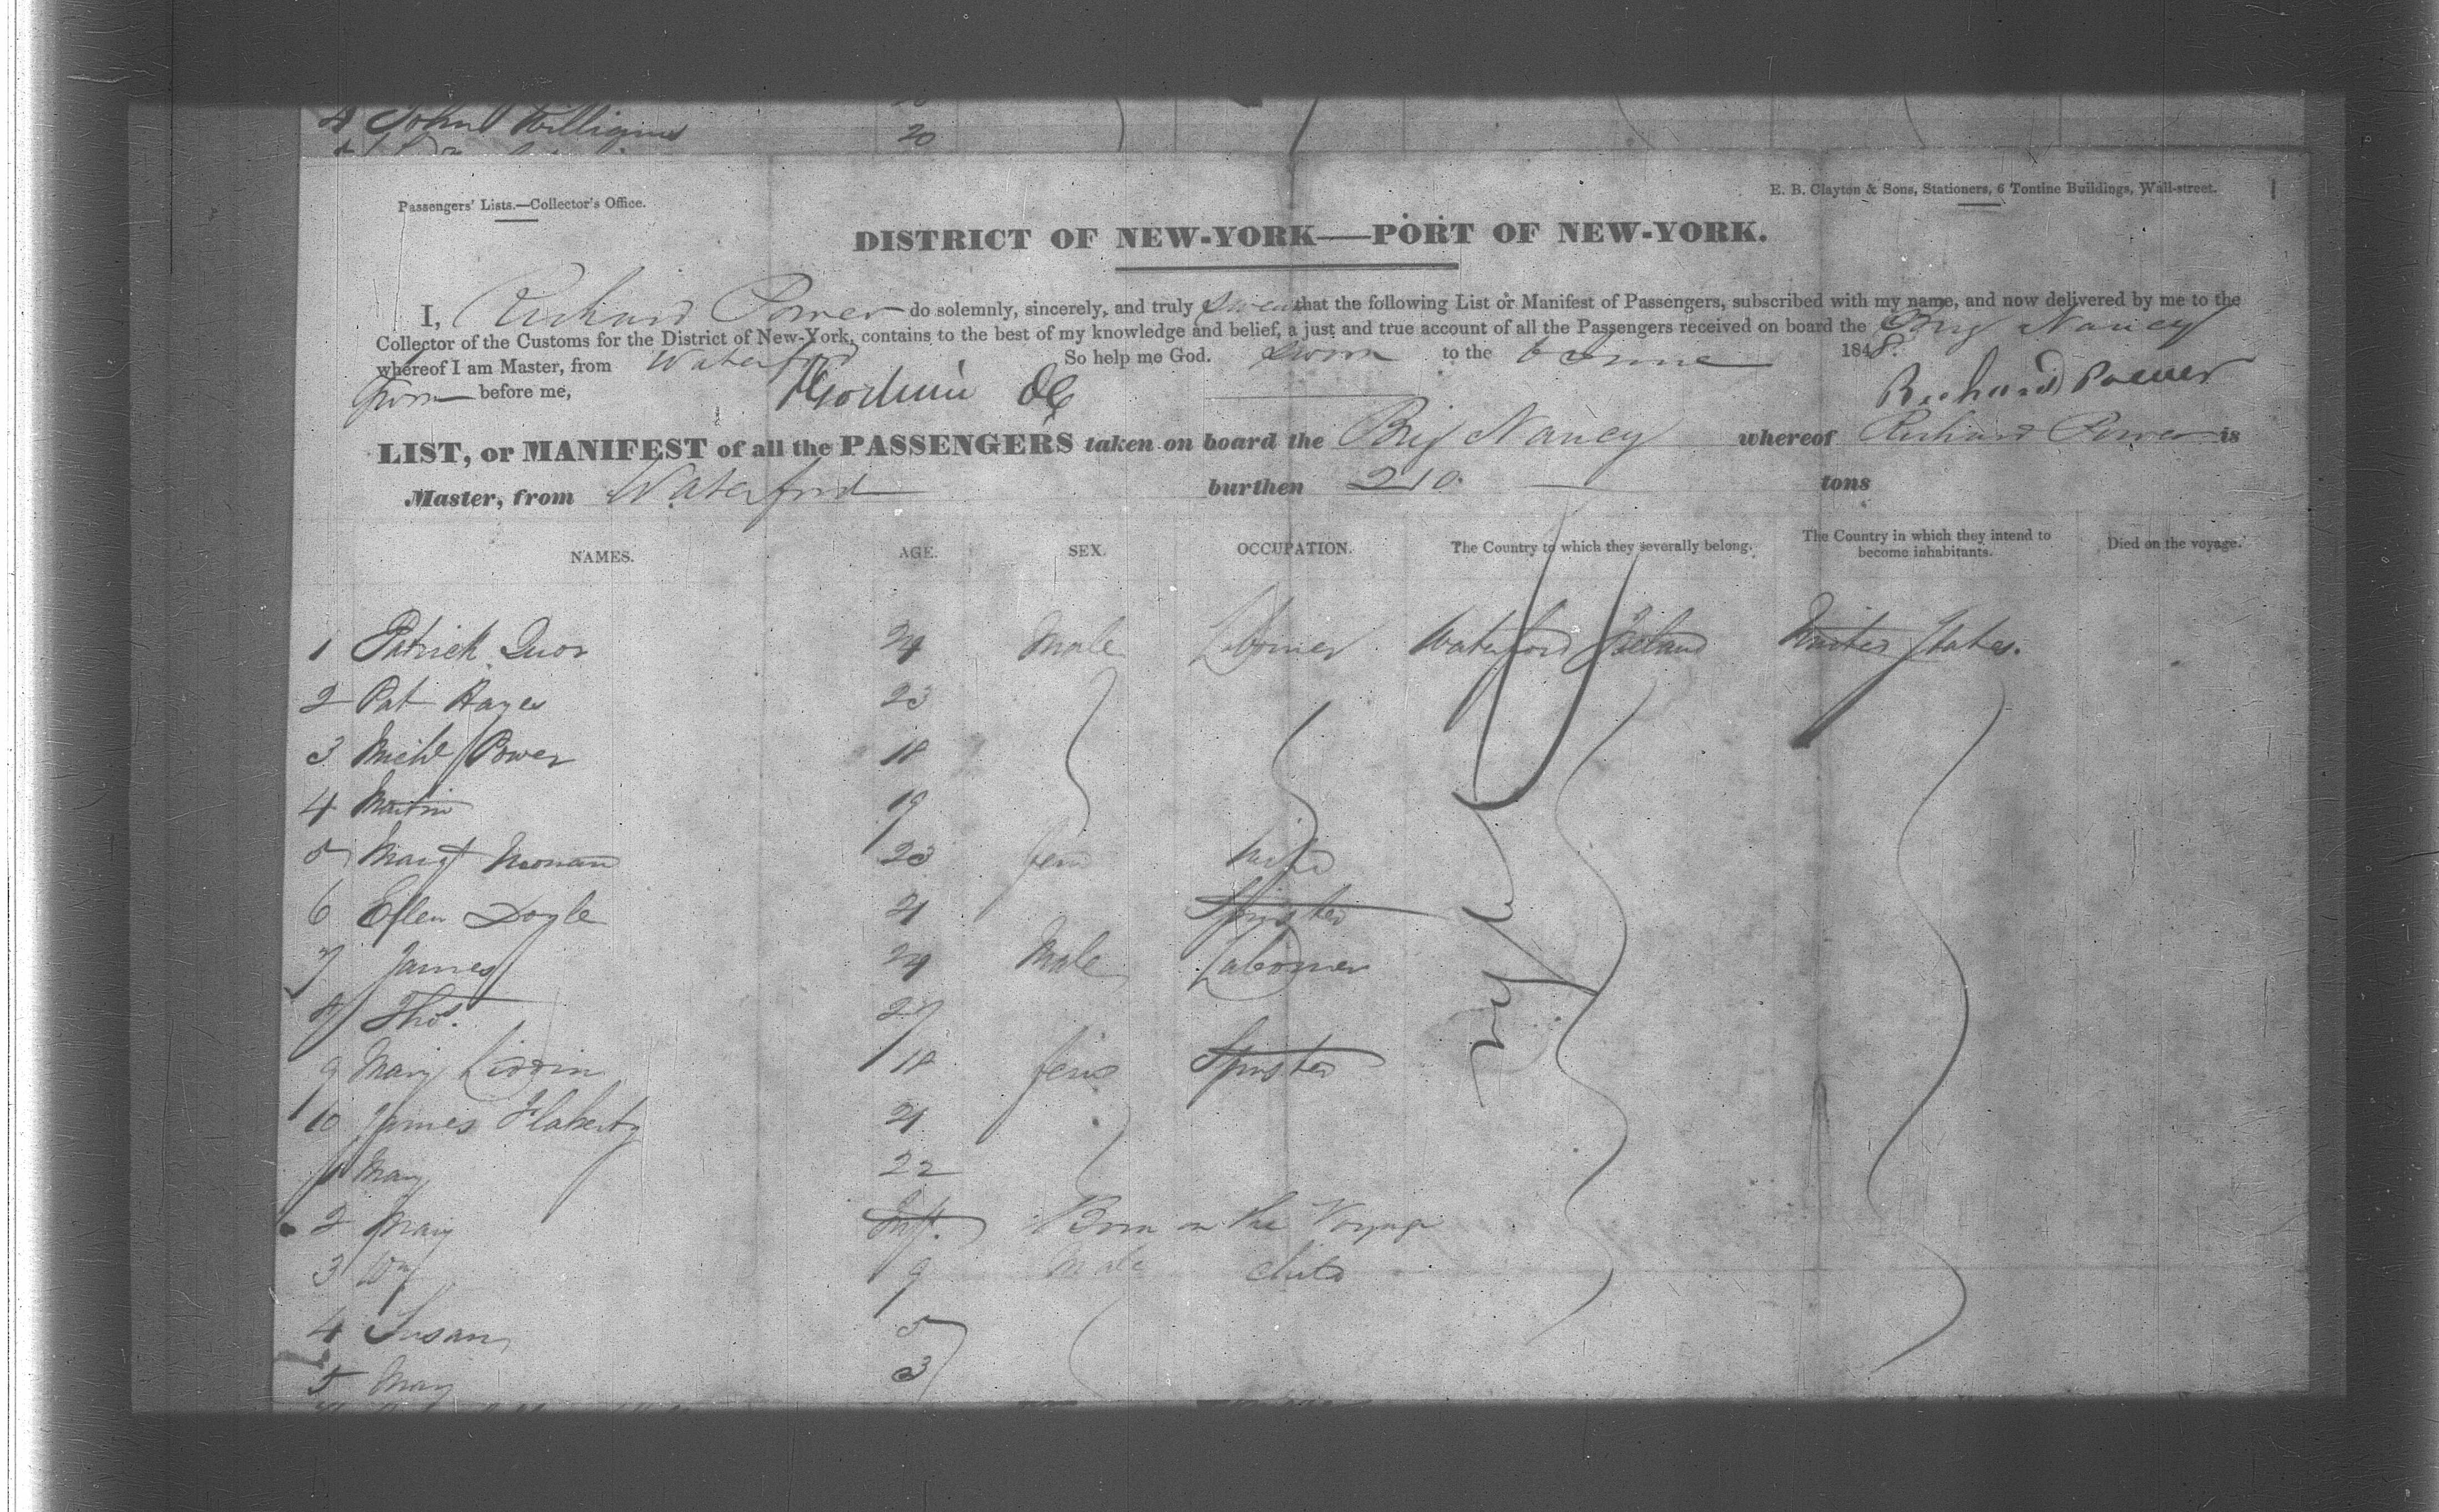 4 John Williams 20
Passengers' Lists.—Collector's Office.
E. B. Clayton & Sons, Stationers, 6 Tontine Buildings, Wall-street.
DISTRICT OF NEW-YORK—PORT OF NEW-YORK.
I, Richard Power do solemnly, sincerely, and truly swear that the following List or Manifest of Passengers, subscribed with my name, and now delivered by me to the
Collector of the Customs for the District of New-York, contains to the best of my knowledge and belief, a just and true account of all the Passengers received on board the Brig Nancy
whereof I am Master, from Waterford So help me God. sworn to the 6 June 1848.
before me, Richard Power
LIST, or MANIFEST of all the PASSENGERS taken on board the Brig Nancy whereof Richard Power is
Master, from Waterford burthen 210 tons
NAMES. AGE. SEX. OCCUPATION. The Country to which they severally belong. The Country in which they intend to become inhabitants. Died on the voyage.
1 Patrick 24 Male Labourer Waterford Ireland United States.
2 Pat Hayes 23
3 Michl Power 18
4 Martin 19
5 Margt 23 fem
6 Ellen Doyle 21 Spinster
7 James 24 Male Labourer
8 Thos. 27
9 Mary 18 fem Spinster
10 James Flaherty 21
1 Mary 22
2 Mary Inft. Born on the Voyage
3 Wm 9 Male child
4 Susan 5
5 Mary 3